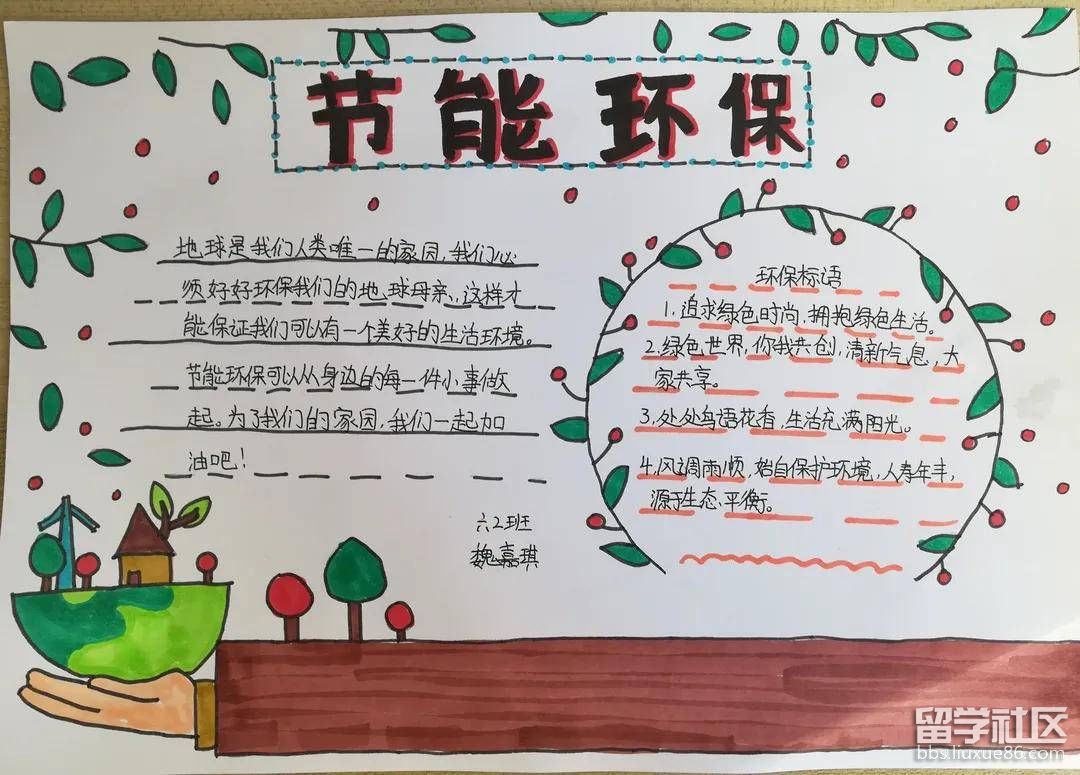 节能环保
地球是我们人类唯一的家园,我们必
须好好环保我们的地球母亲,这样才
能保证我们可以有一个美好的生活环境。
节能环保可以从身边的每一件小事做
起。为了我们的家园,我们一起加
油吧!
六2班
魏嘉琪
环保标语
1.追求绿色时尚,拥抱绿色生活。
2.绿色世界,你我共创,清新气息,大
家共享。
3.处处鸟语花香,生活充满阳光。
4.风调雨顺,始自保护环境,人寿年丰,
源于生态平衡。
留学社区
bbs.liuxue86.com